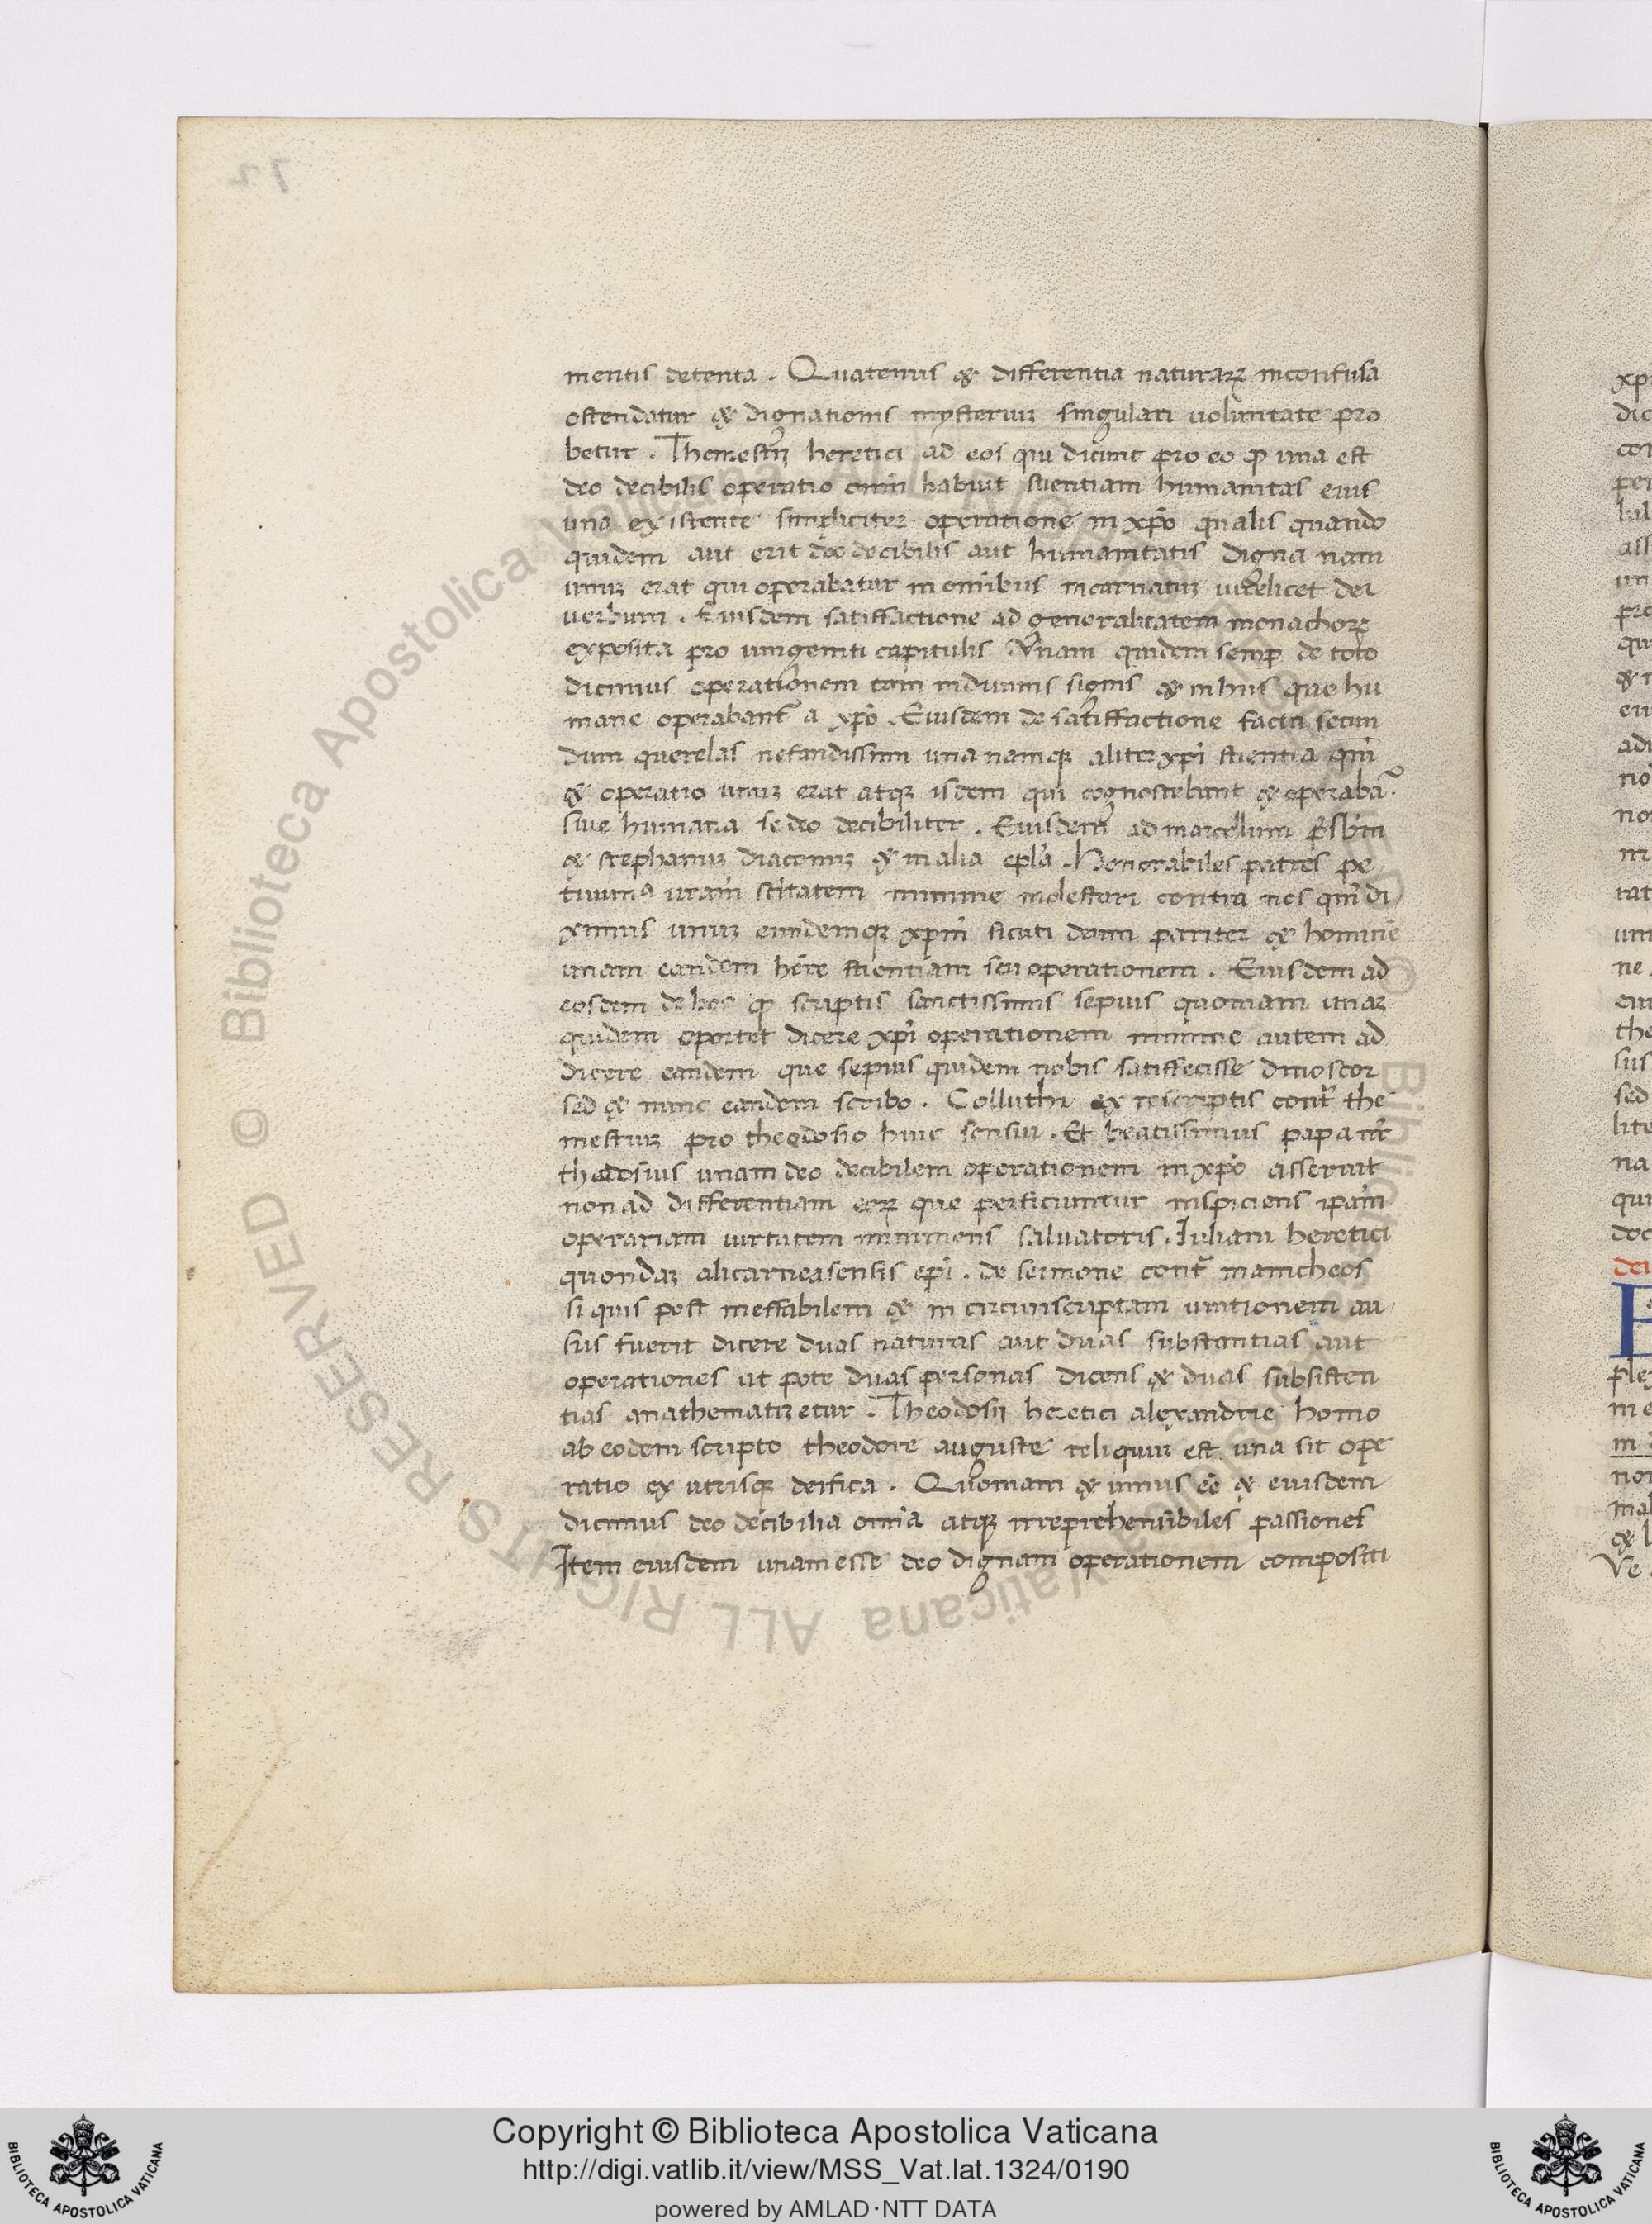 mentis detenta . Quatenus & differentia naturaꝝ inconfusa
ostendatur & dignationis mysteriuꝫ singulari uoluntate pro
betur . Themestij heretici ad eos qui dicunt pro eo ꝙ una est
deo decibilis operatio om̄i habuit scientiam humanitas eius
una existente simpliciter operatione in xp̄o qualis quando
quidem aut erit deo decibilis aut humanitatis digna nam
unuꝫ erat qui operabatur in om̄ibus incarnatuꝫ uidelicet dei
uerbum . Eiusdem satiffactione ad generalitatem monachoꝝ
exposita pro unigeniti capitulis . Vnam quidem semꝑ de toto
dicimus operationem tam in diuinis signis & in hiis que hu
mane operabant᷑ a xp̄o . Eiusdem de satiffactione facta secun
dum querelas nefandissimi una namqꝫ aliter xp̄i scientia qm̄
& operatio unuꝫ erat atqꝫ isdem qui cognoscebant & operaba᷑ .
siue humana se deo decibiliter . Eiusdem ad marcellum p̄sb̄m
& stephanuꝫ diaconuꝫ & in alia ep̄la . Honorabiles patres pe
tiuimꝰ ur̄am sc̄itatem minime molestari contra nos qm̄ di
ximus unuꝫ eundemqꝫ xp̄m sicuti deum pariter & hominē
unam eandem hēre scientiam seu operationem . Eiusdem ad
eosdem de hoc ꝙ scriptis sanctissimis sepius quoniam unaꝫ
quidem oportet dicere xp̄i operationem minime autem ad
dicere eandem que sepius quidem nobis satiffecisse dinoscor
sed & nunc eandem scribo . Colluthi ex rescriptis cont᷑ the
mestiuꝫ pro theodosio huic sensui . Et beatissimus papa nr̄
theodosius unam deo decibilem operationem in xp̄o asseruit
non ad differentiam eoꝝ que perficiuntur inspiciens ip̄am
operariam uirtutem inminens saluatoris . Iuliani heretici
quondaꝫ alicarneasensis ep̄i . de sermone cont᷑ manicheos
si quis post ineffabilem & in circunscriptam unitionem au
sus fuerit dicere duas naturas aut duas substantias aut
operationes ut pote duas personas dicens & duas subsisten
tias anathematizetur . Theodosij heretici alexandrie homo
ab eodem scripto theodore auguste reliquuꝫ est una sit ope
ratio ex utrisqꝫ deifica . Quoniam & unius eē & eiusdem
dicimus deo decibilia om̄ia atqꝫ irreprehensibiles passiones
Item eiusdem unam esse deo dignam operationem compositi
Copyright © Biblioteca Apostolica Vaticana
http://digi.vatlib.it/view/MSS_Vat.lat.1324/0190
powered by AMLAD·NTT DATA
BIBLIOTECA APOSTOLICA VATICANA
BIBLIOTECA APOSTOLICA VATICANA